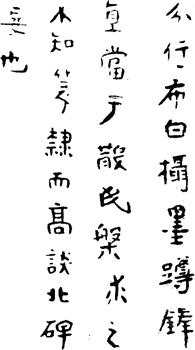 分行布白攝墨蹲鋒
直當于散氏槃求之
不知篆隸而高談北碑
異也